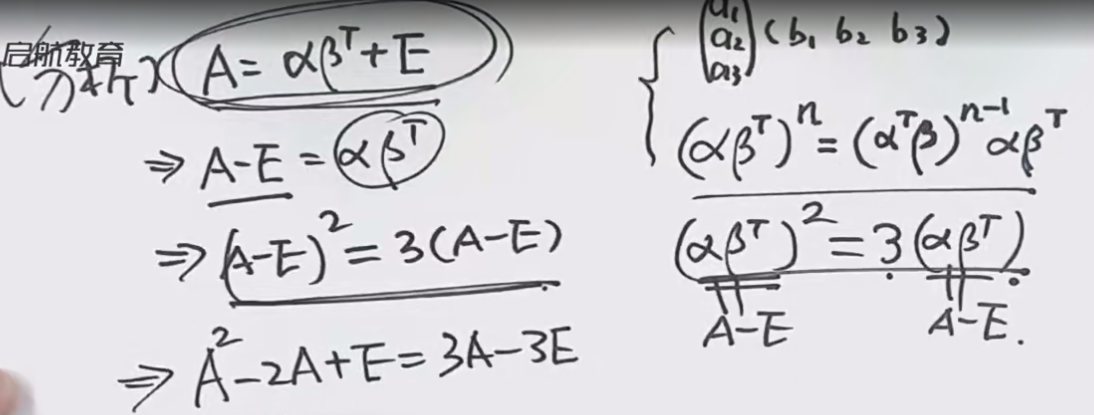 启航教育
(分析) A = αβᵀ + E
⇒ A-E = αβᵀ
⇒ (A-E)² = 3(A-E)
⇒ A² - 2A + E = 3A - 3E
(a₁ a₂ a₃) (b₁ b₂ b₃)
(αβᵀ)ⁿ = (αᵀβ)ⁿ⁻¹ αβᵀ
(αβᵀ)² = 3(αβᵀ)
A-E A-E.